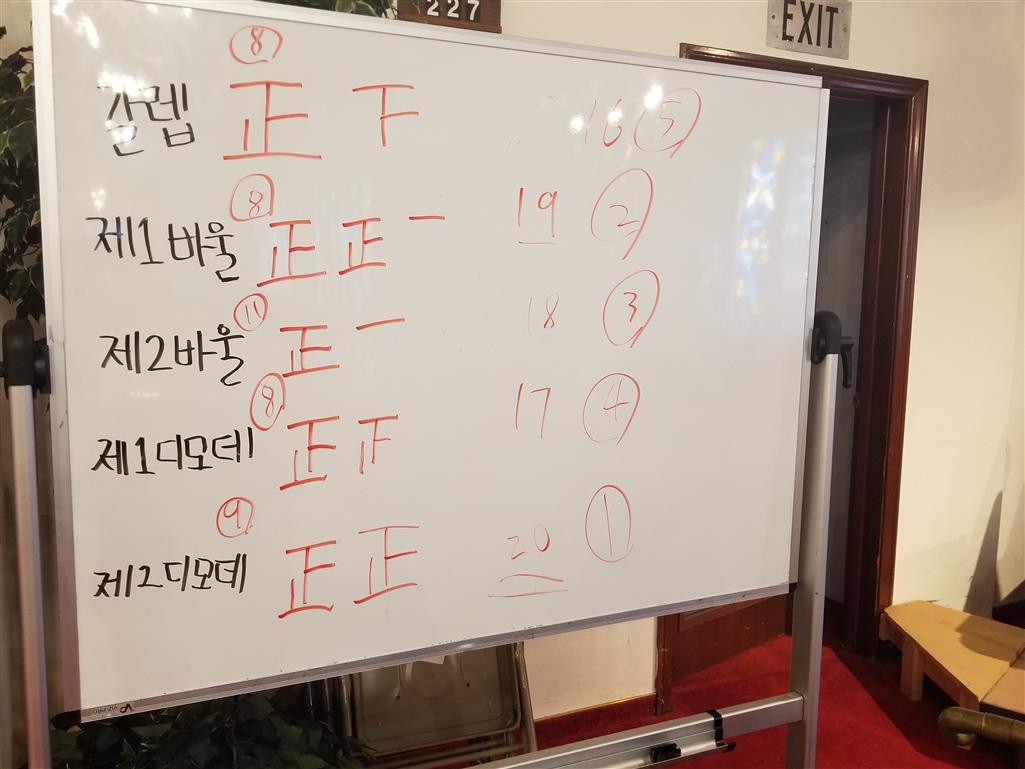 227
EXIT
⑧
갈렙 正 F 16 ⑤
⑧
제1바울 正 正 一 19 ②
⑪
제2바울 正 一 18 ③
⑧
제1디모데 正 正 17 ④
⑨
제2디모데 正 正 20 ①